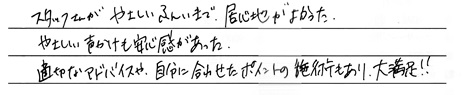 スタッフさんが やさしいふんいきで、居心地がよかった。
やさしい声かけも安心感があった。
適切なアドバイスや、自分に合わせたポイントの施術もあり、大満足!!